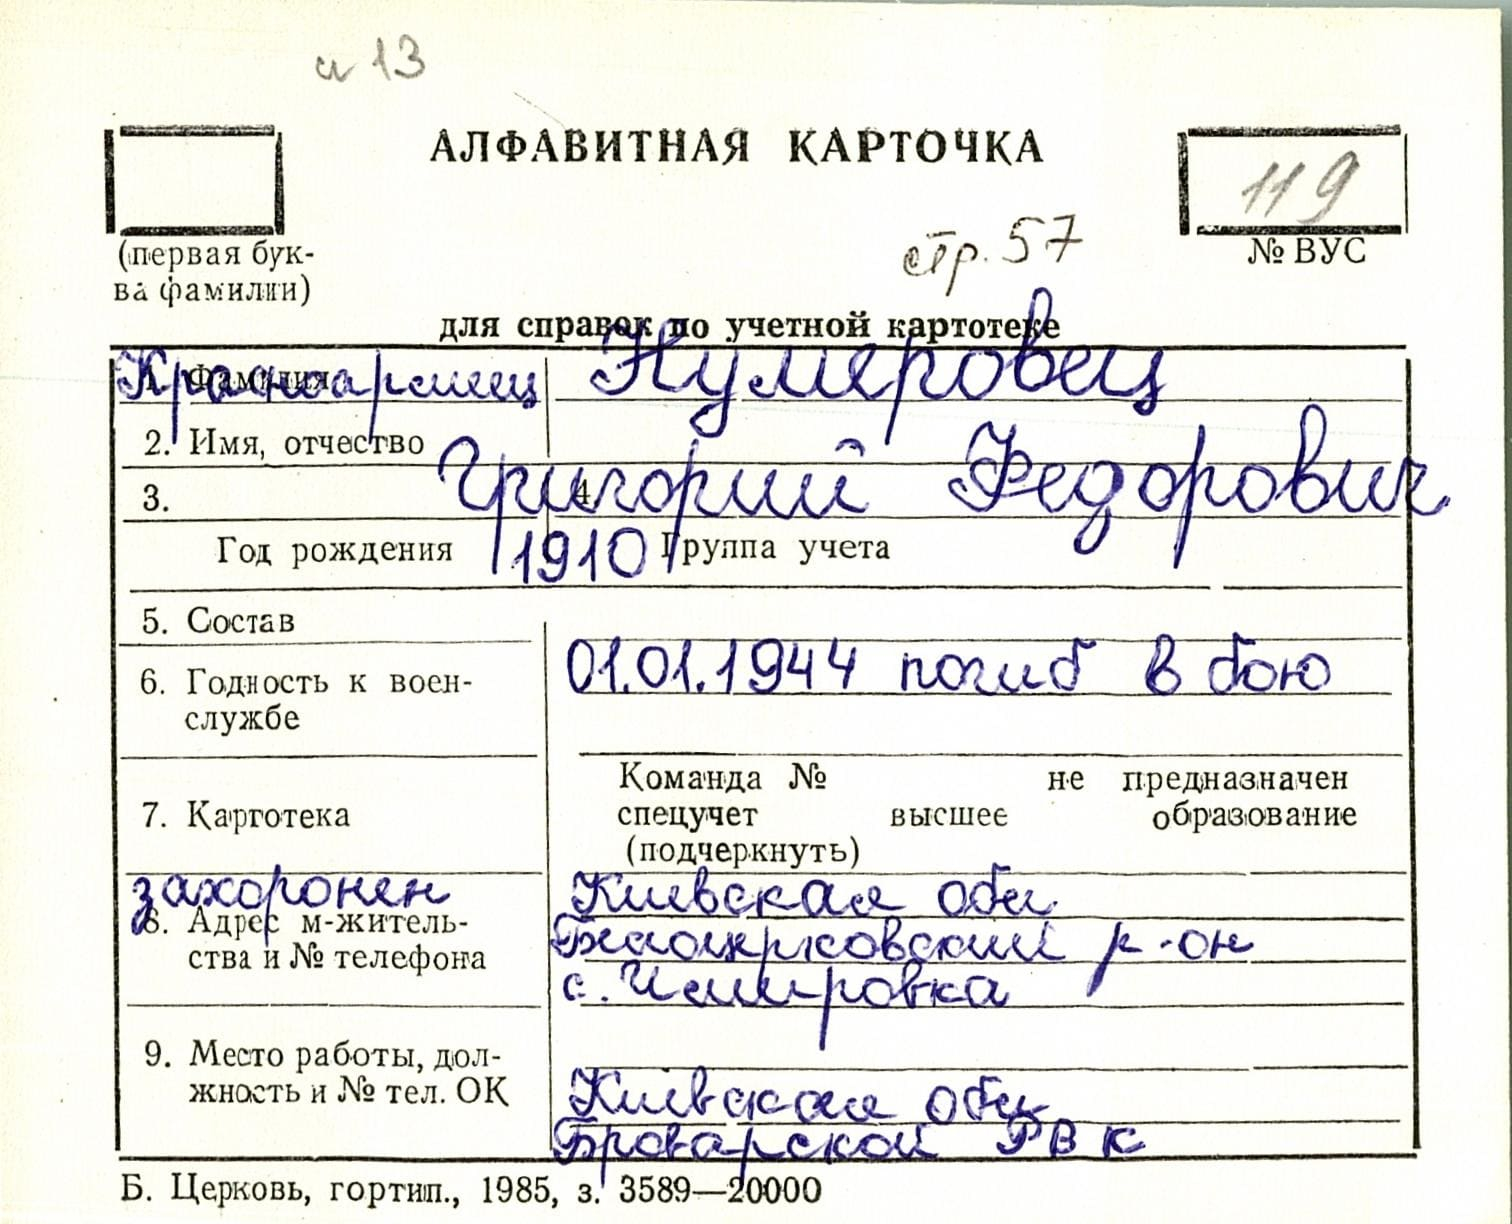 и 13
АЛФАВИТНАЯ КАРТОЧКА
119
(первая бук-
ва фамилии)
№ ВУС
стр. 57
для справок по учетной картотеке
1. Фамилия
Красноармеец Нумеровец
2. Имя, отчество
Григорий Федорович
3. 4.
Год рождения 1910 Группа учета
5. Состав
6. Годность к воен-
службе
01.01.1944 погиб в бою
7. Картотека
Команда № не предназначен
спецучет высшее образование
(подчеркнуть)
захоронен Киевская обл
8. Адрес м-житель-
ства и № телефона
Белоцерковский р-он
с.
9. Место работы, дол-
жность и № тел. ОК
Киевская обл
Броварской РВК
Б. Церковь, гортип., 1985, з. 3589—20000